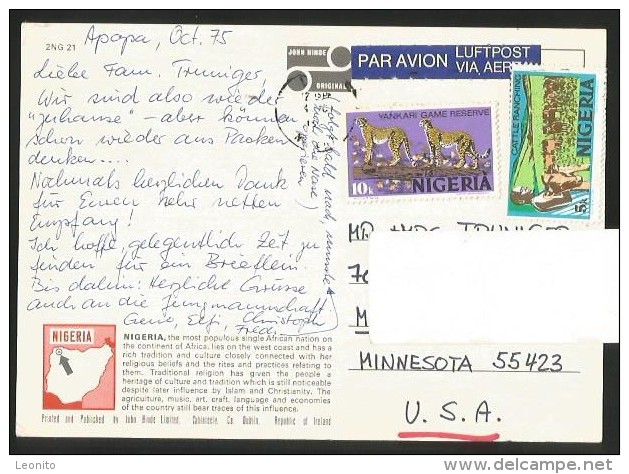 2NG.21
Apapa, Oct. 75
Liebe Fam. Truniger,
Wir sind also wieder
"zuhause" - aber können
schon wieder ans Packen
denken....
Nochmals herzlichen Dank
für Euren sehr netten
Empfang!
Ich hoffe, gelegentlich Zeit zu
finden für ein Brieflein.
Bis dahin: Herzliche Grüsse
auch an die Jungmannschaft
Christoph
Fredi
JOHN HINDE
ORIGINAL
PAR AVION LUFTPOST
VIA AER
YANKARI GAME RESERVE
10k NIGERIA
CATTLE RANCHING
5k NIGERIA
MINNESOTA 55423
U.S.A.
NIGERIA
NIGERIA, the most populous single African nation on
the continent of Africa, lies on the west coast and has a
rich tradition and culture closely connected with her
religious beliefs and the rites and practices relating to
them. Traditional religion has given the people a
heritage of culture and tradition which is still noticeable
despite later influence by Islam and Christianity. The
agriculture, music, art, craft, language and economies
of the country still bear traces of this influence.
Printed and Published by John Hinde Limited, Cabinteely, Co. Dublin, Republic of Ireland
© Leonito
www.delcampe.net